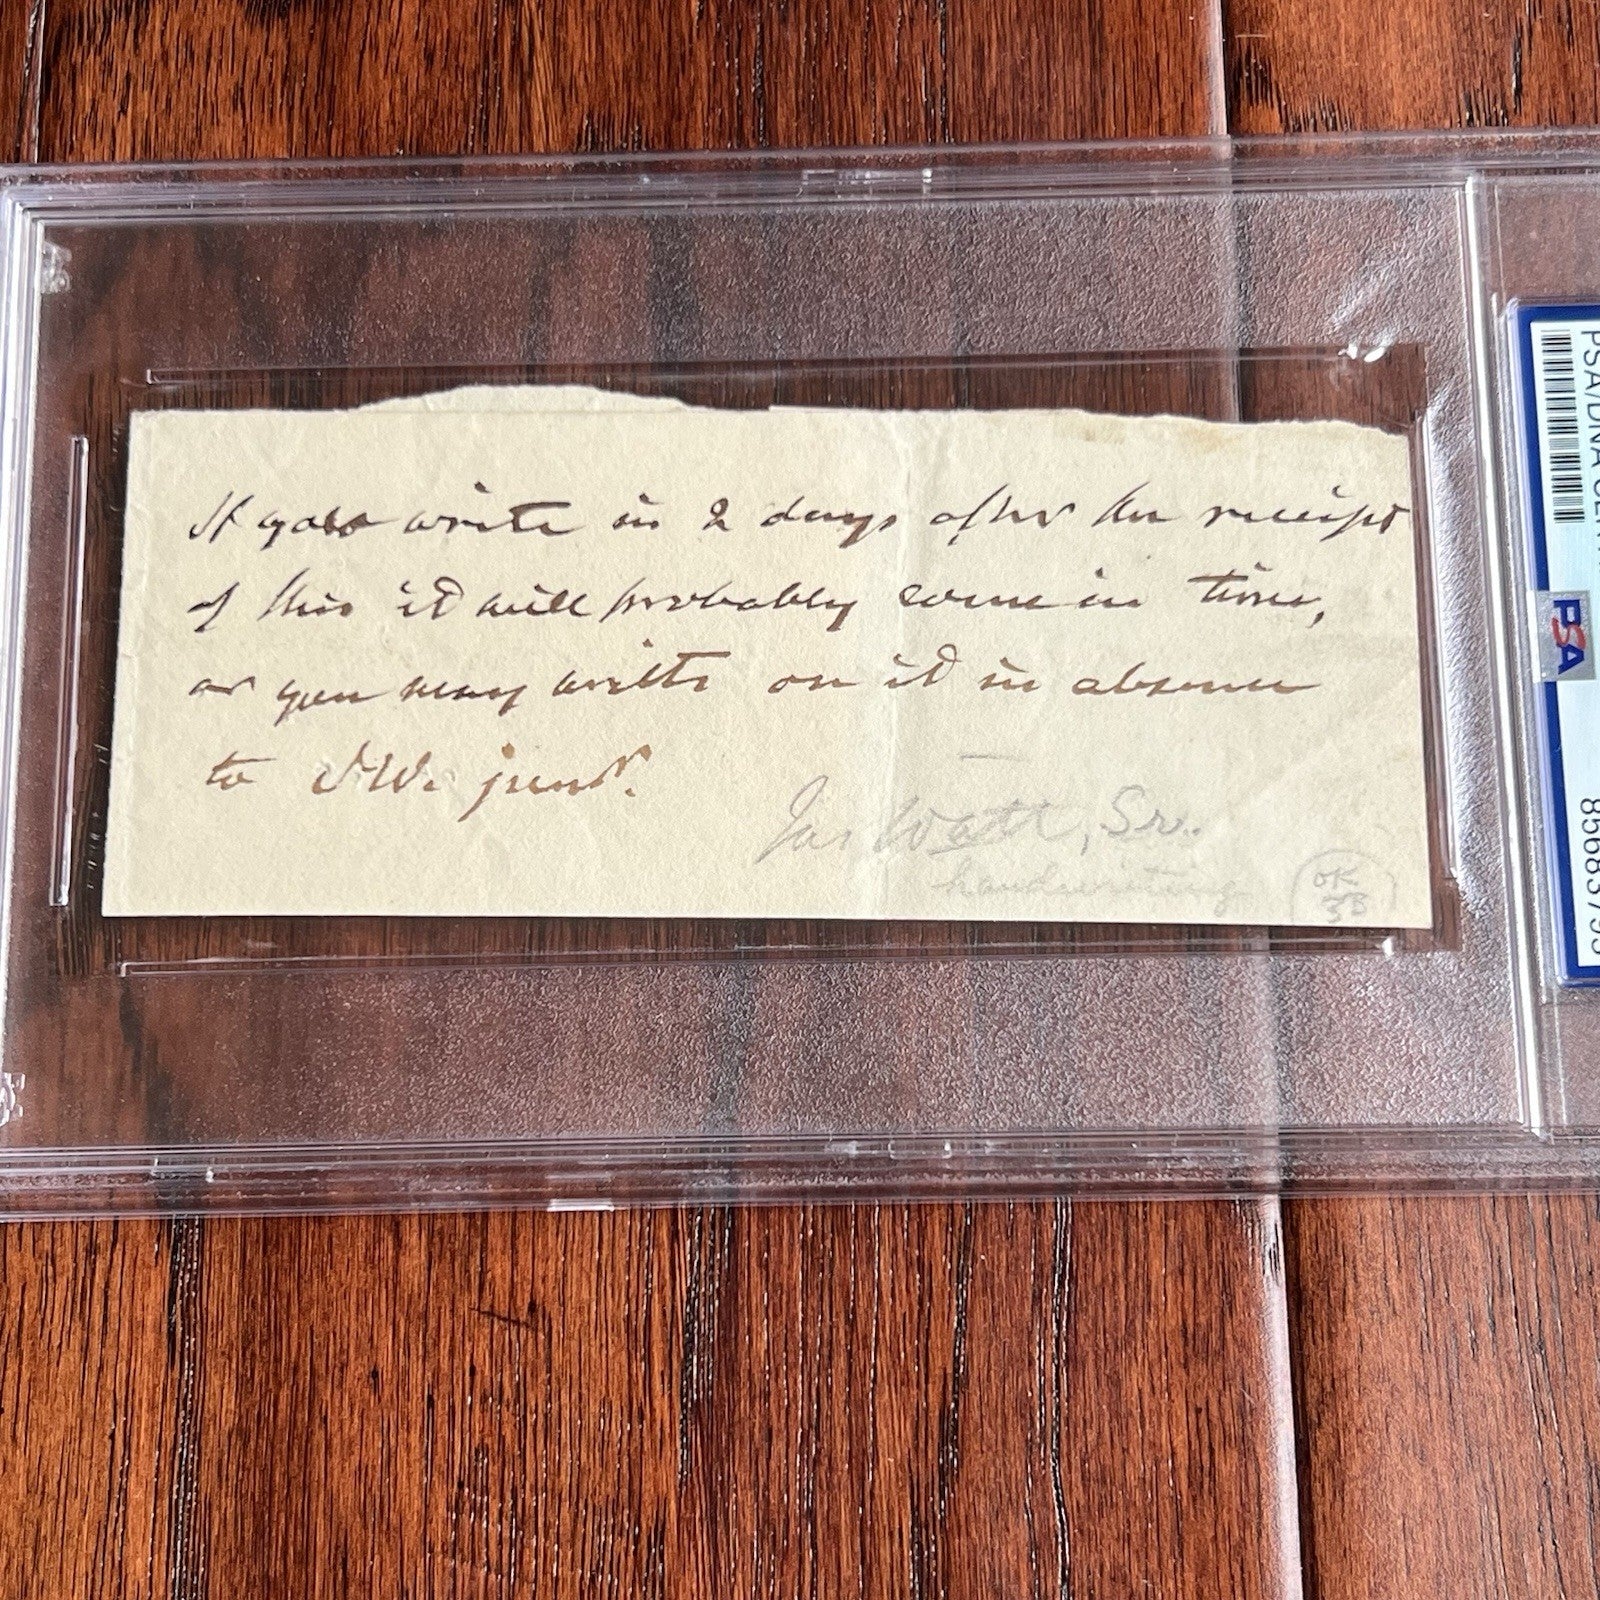 If you write in 2 days after the receipt
of this it will probably come in time,
or you may write on it in absence
to J.W. junr.
Jas Watt, Sr.
handwriting
OK
PSA/DNA CE
PSA